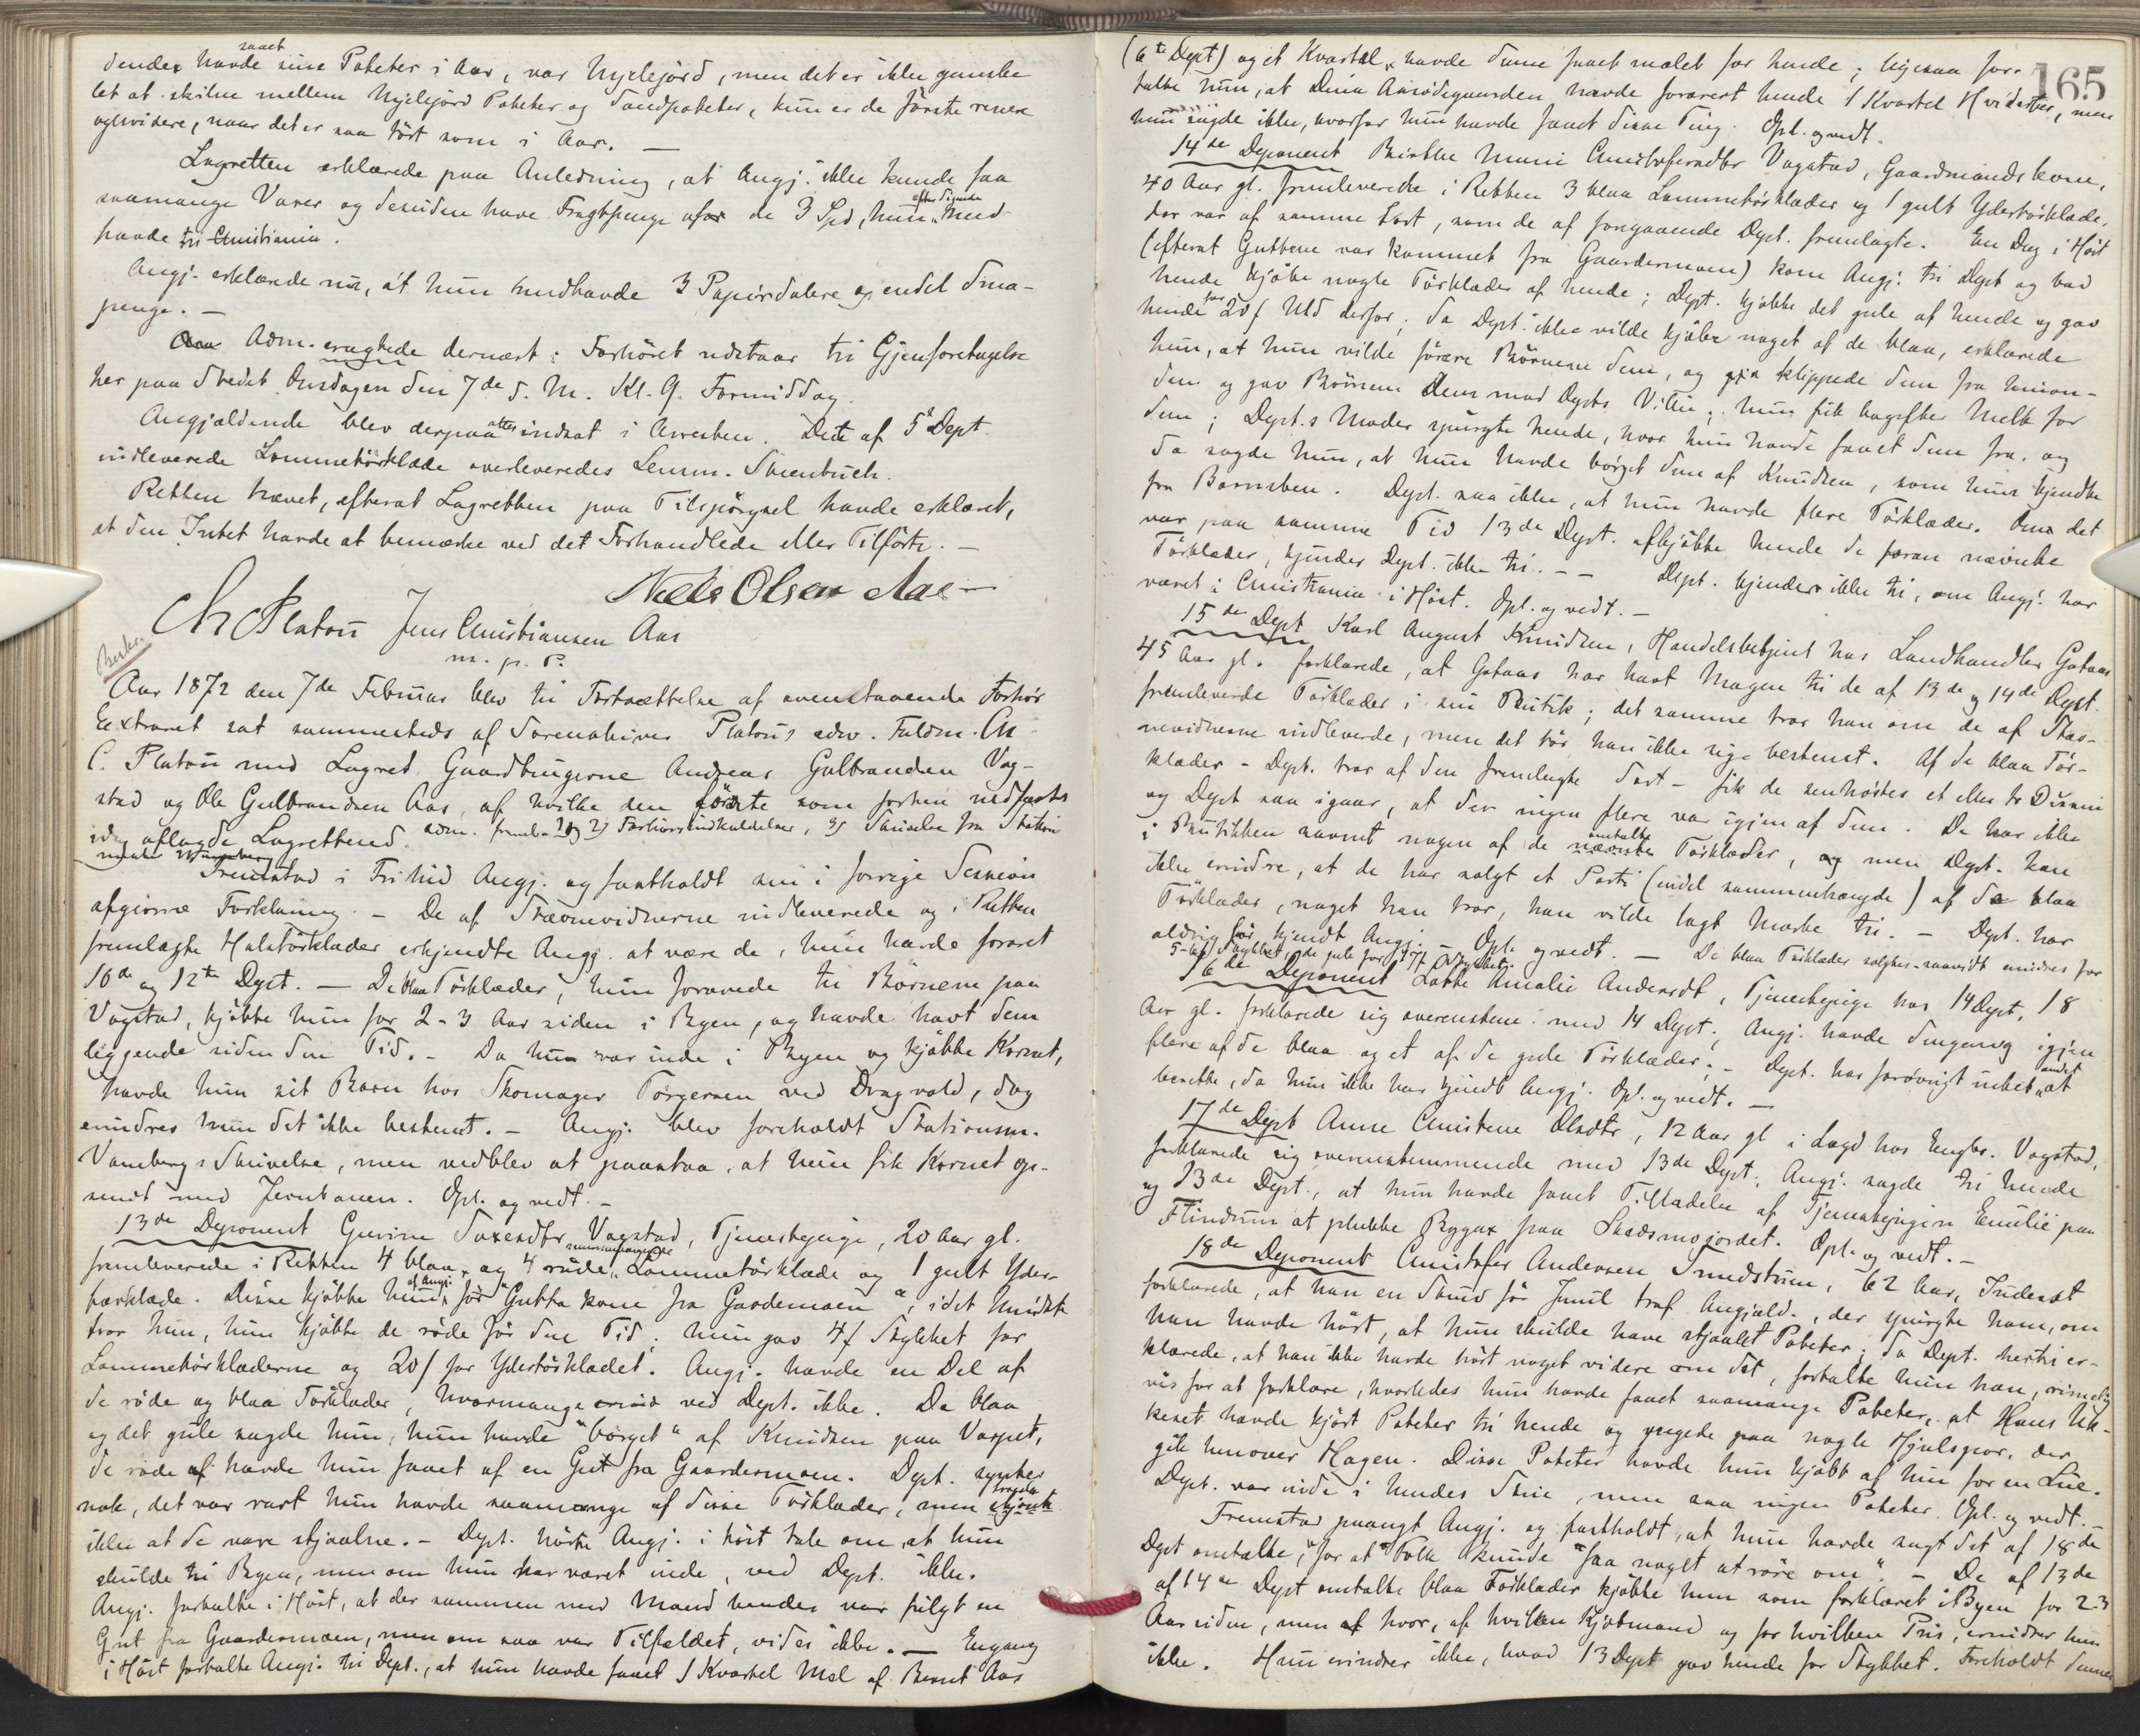 dende havde saaet sine Poteter i Aar, var Nyelejord, men det er ikke ganske
let at skilne mellem Nyelejord Poteter og Sandpoteter, kun er de første renere
og hvidere, naar det er saa tørt som i Aar. —
Lagretten erklærede paa Anledning, at Angj. ikke kunde faa
saamange Varer og desuden have Fragtpenge af de 3 Spd, hun efter Sigende med-
havde til Christiania.
Angj. erklærede nu, at hun medhavde 3 Papirdalere og endel Smaa-
penge. —
Adm. eragtede dernæst: Forhøret udstaar til Gjenforetagelse
her paa Stedet Onsdagen den 7de d. M. Kl. 9 Formiddag.
Angjældende blev derpaa atter indsat i Arresten. Dete af 5te Dept.
indleverede Lommetørklæde overleveredes Lensm. Steenbuch.
Retten hævet, efterat Lagretten paa Tilspørgsel havde erklæret,
at den Intet havde at bemærke ved det Forhandlede eller Tilførte. —
Niels Olsen Aas
Chr Platou Jens Christiansen Aas
m. p. P.
Aar 1872 den 7de Februar blev til Fortsættelse af ovenstaaende Forhør
Extraret sat sammesteds af Sorenskriver Platous edsv. Fuldm. Ch
C. Platou med Lagret Gaardbrugerne Andreas Gulbrandsen Vog-
stad og Ole Gulbrandsen Aas, af hvilke den første som forhen
idag aflagde Lagretteed. Adm. freml. 1) og 2) Forhørsindkaldelser, 3) Skrivelse fra Stations
mester Wamberg
Fremstod i Frihed Angj. og fastholdt sin i forrige Session
afgivne Forklaring. — De af Stævnevidnerne indleverede og i Retten
fremlagte Halstørklæder erkjendte Angj. at være de, hun havde foræret
10de og 12te Dept. — De blaa Tørklæder, hun forærede til Børnene paa
Vogstad, kjøbte hun for 2-3 Aar siden i Byen, og havde havt dem
liggende siden den Tid. — Da hun var inde i Byen og kjøbte Kornet,
havde hun sit Barn hos Skomager Torgersen ved Dragvold, dog
erindres hun det ikke bestemt. — Angj. blev foreholdt Stationsm.
Vambergs Skrivelse, men vedblev at paastaa, at hun fik Kornet op-
sendt med Jernbanen. Opl. og vedt. —
13de Deponent Gurine Vogstad, Tjenestepige, 20 Aar gl.
fremleverede i Retten 4 blaa og 4 røde sammenhængende Lommetørklæde og 1 gult Yder-
tørklæde. Disse kjøbte hun af Angj. før "Gutta kom fra Gardemoen", idet mindste
tror hun, hun kjøbte de røde før den Tid; hun gav 4 f Stykket for
Lommetørklæderne og 20 f for Ydertørklædet. Angj. havde en Del af
de røde og blaa Tørklæder, hvormange ved Dept. ikke. De blaa
og det gule sagde hun, hun havde "børget" af Knudsen paa Vorpet,
de røde havde hun faaet af en Gut fra Gaardermoen. Dept. synster
nok, det var rart hun havde saamange af disse Tørklæder, men troede
ikke at de vare stjaalne. — Dept. hørte Angj. i Høst tale om, at hun
skulde til Byen, men om hun har været inde, ved Dept. ikke.
Angj. fortalte i Høst, at der sammen med Mand hendes var fulgt en
Gut fra Gaardermoen, men om saa var Tilfældet, vides ikke. — Engang
i Høst fortalte Angj. til Dept., at hun havde faaet 1 Kvartel Mel af Bernt Aas
165
(6te Dept) og et Kvartel havde denne faaet malet for hende; ligesaa for-
talte hun, at Dina Aasødegaarden havde foræret hende 1 Kvartel Hvidærter, men
hun sagde ikke, hvorfor hun havde faaet disse Ting. Opl. og vedt.
14de Deponent Birthe Marie Christofersdtr Vogstad, Gaardmandskone,
40 Aar gl. fremleverede i Retten 3 blaa Lommetørklæder og 1 gult Ydertørklæde,
der var af samme Sort, som de af foregaaende Dept. fremlagte. En Dag i Høst
(efterat Guttene var kommet fra Gaardermoen) kom Angj. til Dept og bad
hende kjøbe nogle Tørklæder af hende; Dept. kjøbte det gule af hende og gav
hende for 20 f Uld derfor; da Dept. ikke vilde kjøbe noget af de blaa, erklærede
hun, at hun vilde forære Børnene dem, og klippede dem fra hinan-
den og gav Børnene dem mod Depts Villie; hun fik bagefter Melk for
dem; Dept.s Moder spurgte hende, hvor hun havde faaet dem fra, og
da sagde hun, at hun havde børget dem af Knudsen, som hun kjendte
fra Barnsben. Dept. saa ikke, at hun havde flere Tørklæder. Om det
var paa samme Tid 13de Dept. afkjøbte hende de foran nævnte
Tørklæder, kjender Dept. ikke til. — — Dept. kjender ikke til, om Angj. har
været i Christiania i Høst. Opl. og vedt. —
15de Dept Karl August Knudsen, Handelsbetjent hos Landhandler Gotaas
45 Aar gl. forklarede, at Gotaas har havt Magen til de af 13de og 14de Dept.
fremleverede Tørklæder i sin Butik; det samme tror han om de af Stæv-
nevidnerne indleverede, men det tør han ikke sige bestemt. Af de blaa Tør-
klæder - Dept. tror af den fremlagte Sort - fik de senhøstes et eller to Dusin
og Dept saa igaar, at der ingen flere var igjen af dem. De har ikke
i Butikken savnet nogen af de omtalte Tørklæder, men Dept. kan
ikke erindre, at de har solgt et Parti (endel sammenhængde) af de blaa
Tørklæder, noget han tror, han vilde lagt Mærke til. — Dept. har
aldrig før kjendt Angj. — Opl. og vedt. — De blaa Tørklæder solgtes saavidt erindres for
5-6 f Stykket, de gule for Stykket.
16de Deponent Lotte Amalie Andersdt, Tjenestepige hos 14 Dept, 18
Aar gl. forklarede sig overenstem. med 14 Dept; Angj. havde dengang igjen
flere af de blaa og et af de gule Tørklæder; — Dept. har forøvrigt intet andet at
berette, da hun ikke har kjendt Angj. Opl. og vedt. —
17de Dept Anne Christine Olsdtr, 12 Aar gl i Lægd hos Engbr. Vogstad,
forklarede sig overensstemmende med 13de Dept; Angj. sagde til hende
og 13de Dept., at hun havde faaet Tilladelse af Tjenestepigen Emilie paa
Flindrum at plukke Bygax paa Skedsmojordet. Opl. og vedt. —
18de Deponent Christofer Andersen Smedstuen, 62 Aar, Inderst
forklarede, at han en Stund før Juul traf Angjæld., der spurgte ham, om
han havde hørt, at hun skulde have stjaalet Poteter; da Dept. hertil er-
klærede, at han ikke havde hørt noget videre om det, fortalte hun ham, rimelig-
vis for at forklare, hvorledes hun havde faaet saamange Poteter, at Hans Uk-
keset havde kjørt Poteter til hende og pegede paa nogle Hjulspor, der
gik henover Hagen. Disse Poteter havde hun kjøbt af him for en Lue.
Dept. var inde i hendes Stue, men saa ingen Poteter. Opl. og vedt. —
Fremstod paanyt Angj. og fastholdt, at hun havde sagt det af 18de
Dept omtalte, "for at Folk kunde "faa noget at røre om". — De af 13de
af 14de Dept omtalte blaa Tørklæder kjøbte hun som forklaret i Byen for 2-3
Aar siden, men hvor, af hvilken Kjøbmand og for hvilken Pris, erindrer hun
ikke. Hun erindrer ikke, hvad 13 Dept gav hende for Stykket. Foreholdt dennes